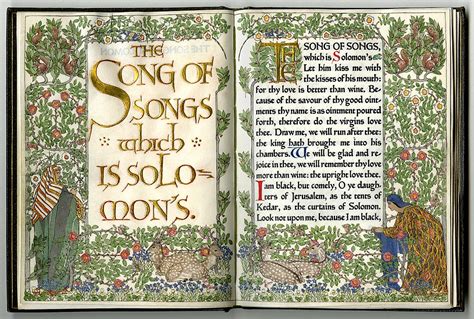 THE
SONG OF
SONGS
which
IS SOLO=
MON'S.
THE SONG OF SONGS,
which is Solomon's
Let him kiss me with
the kisses of his mouth:
for thy love is better than wine. Be=
cause of the savour of thy good oint=
ments thy name is as ointment poured
forth, therefore do the virgins love
thee. Draw me, we will run after thee:
the king hath brought me into his
chambers. We will be glad and re=
joice in thee, we will remember thy love
more than wine: the upright love thee.
I am black, but comely, O ye daugh=
ters of Jerusalem, as the tents of
Kedar, as the curtains of Solomon.
Look not upon me, because I am black,